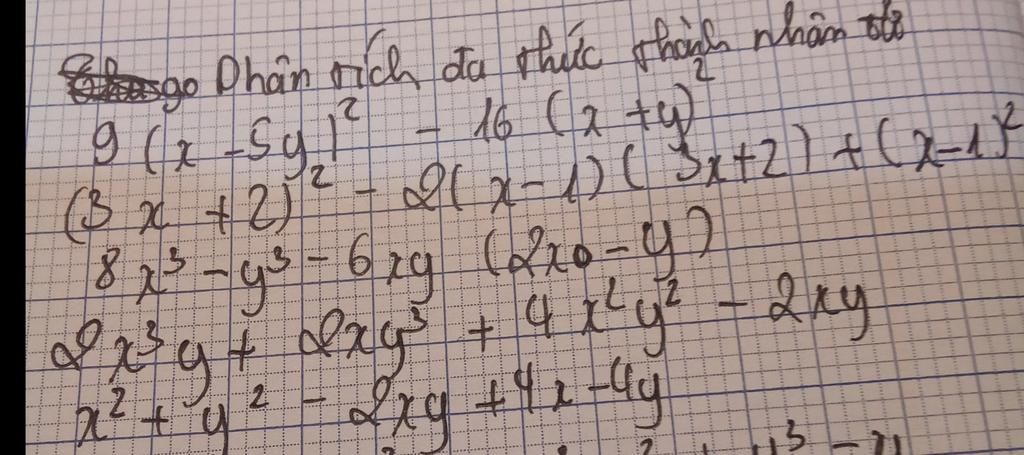 go Phân tích đa thức thành nhân tử
9 (x - 5y)² - 16 (x + y)²
(3x + 2)² - 2(x - 1)(3x + 2) + (x - 1)²
8x³ - y³ - 6xy (2x - y)
2x³y + 2xy³ + 4x²y² - 2xy
x² + y² - 2xy + 4x - 4y